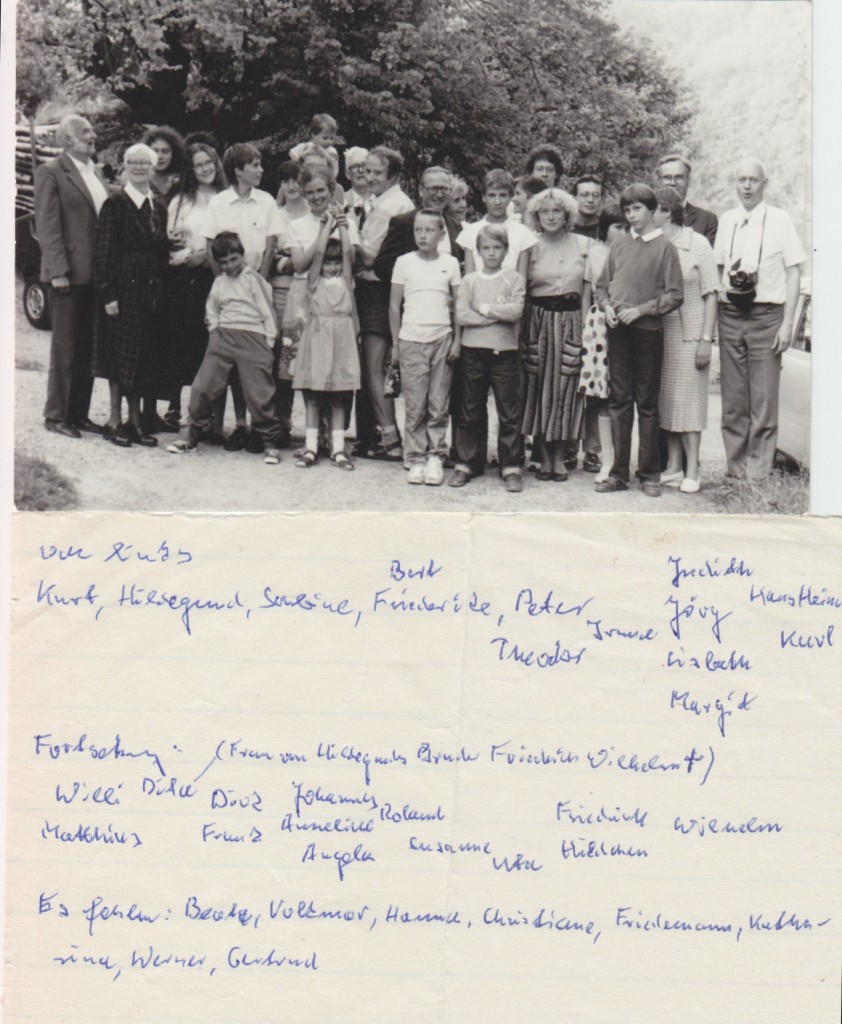 von links
Bert Judith
Kurt, Hildegund, Friederike, Peter Jörg Hans Heinr
Theodor Irene Lisbeth Kurt
Margit
Fortsetzung: (Frau von Hildegunds Bruder Friedrich Wilhelm †)
Willi Dörz Johannes Roland Friedrich Wilhelm
Matthias Franz Anneliese
Angela Susanne Uta Hildchen
Es fehlen: Beate, Volkmar, Hanna, Christiane, Friedemann, Katha-
rina, Werner, Gertrud